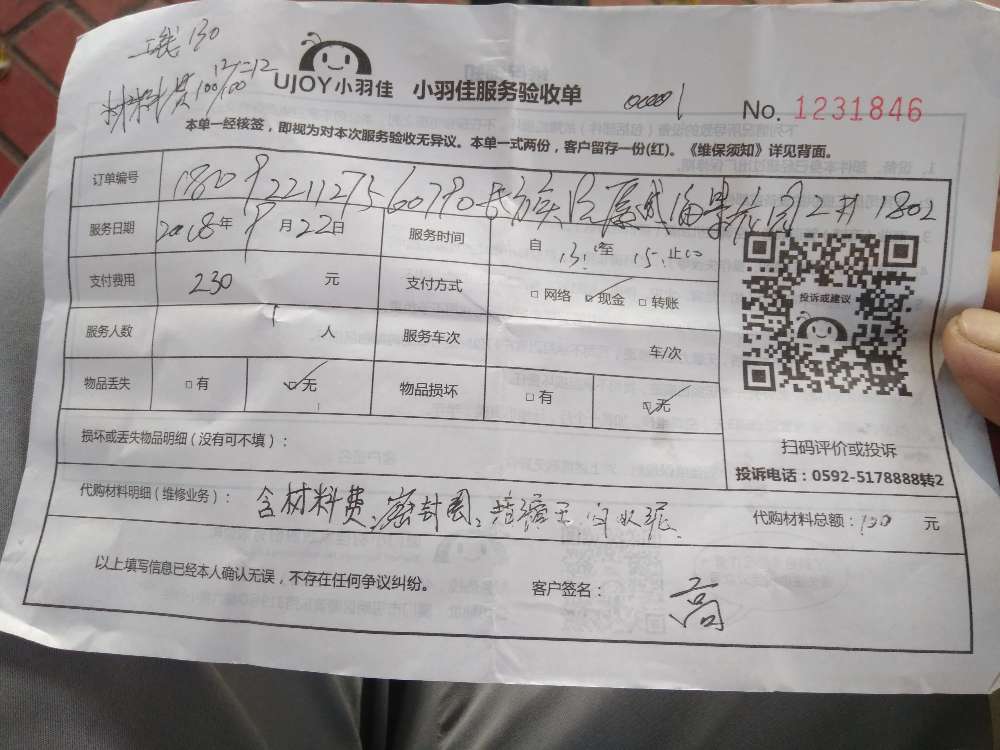 工钱 130
材料费 100
UJOY 小羽佳
小羽佳服务验收单
00001
No. 1231846
本单一经核签,即视为对本次服务验收无异议。本单一式两份,客户留存一份(红)。《维保须知》详见背面。
订单编号 2井1802
服务日期 2018年9月22日 服务时间 自 13: 至 15: 止
支付费用 230 元 支付方式 □ 网络 ☑ 现金 □ 转账
服务人数 1 人 服务车次 车/次
物品丢失 □ 有 ☑ 无 物品损坏 □ 有 ☑ 无
投诉或建议
损坏或丢失物品明细(没有可不填):
扫码评价或投诉
投诉电话:0592-5178888转2
代购材料明细(维修业务): 含材料费、密封圈、 代购材料总额:100 元
以上填写信息已经本人确认无误,不存在任何争议纠纷。 客户签名: 高